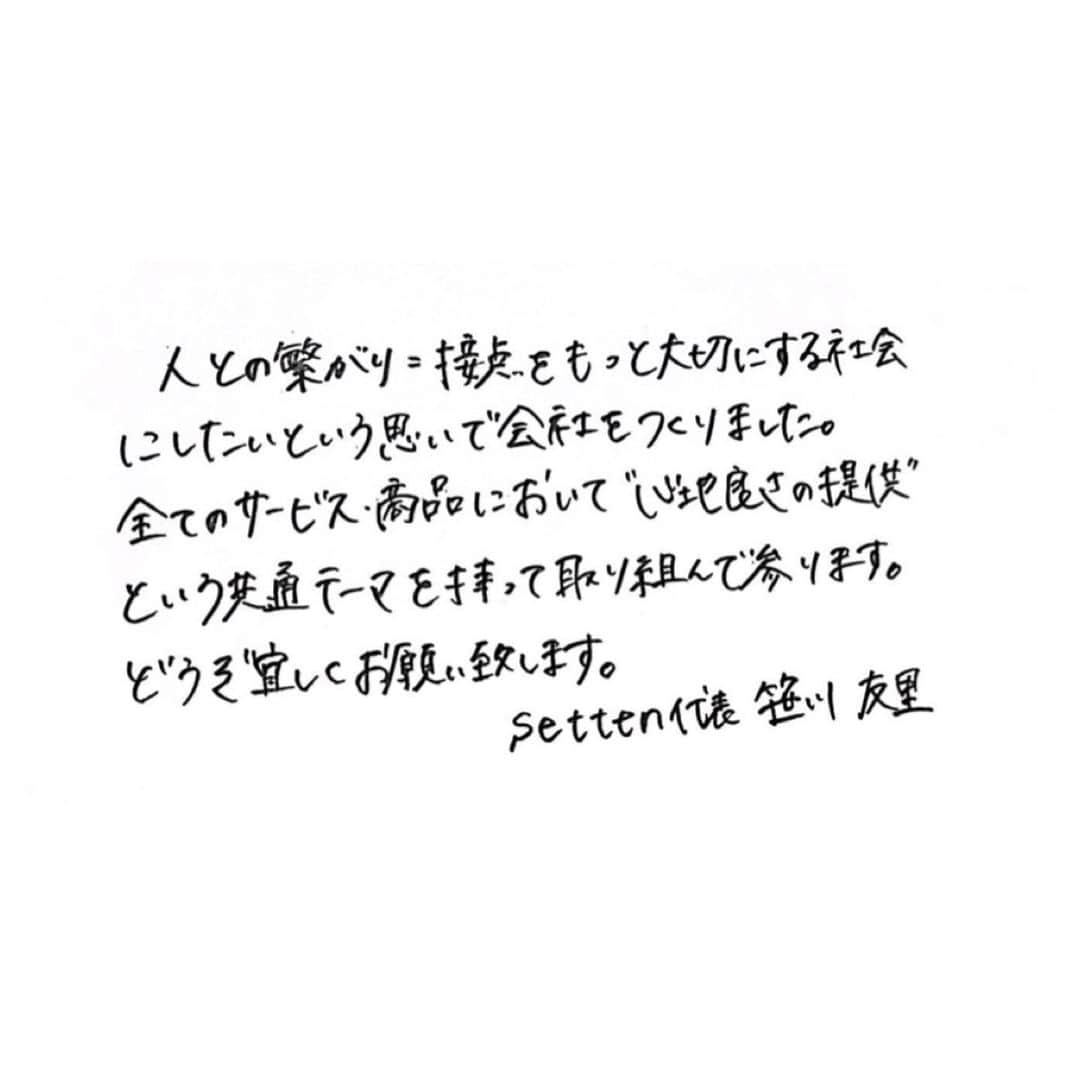 人との繁がり=接点をもっと大切にする社会
にしたいという思いで会社をつくりました。
全てのサービス・商品において“心地良さの提供”
という共通テーマを持って取り組んで参ります。
どうぞ宜しくお願い致します。
setten代表 笹川 友里